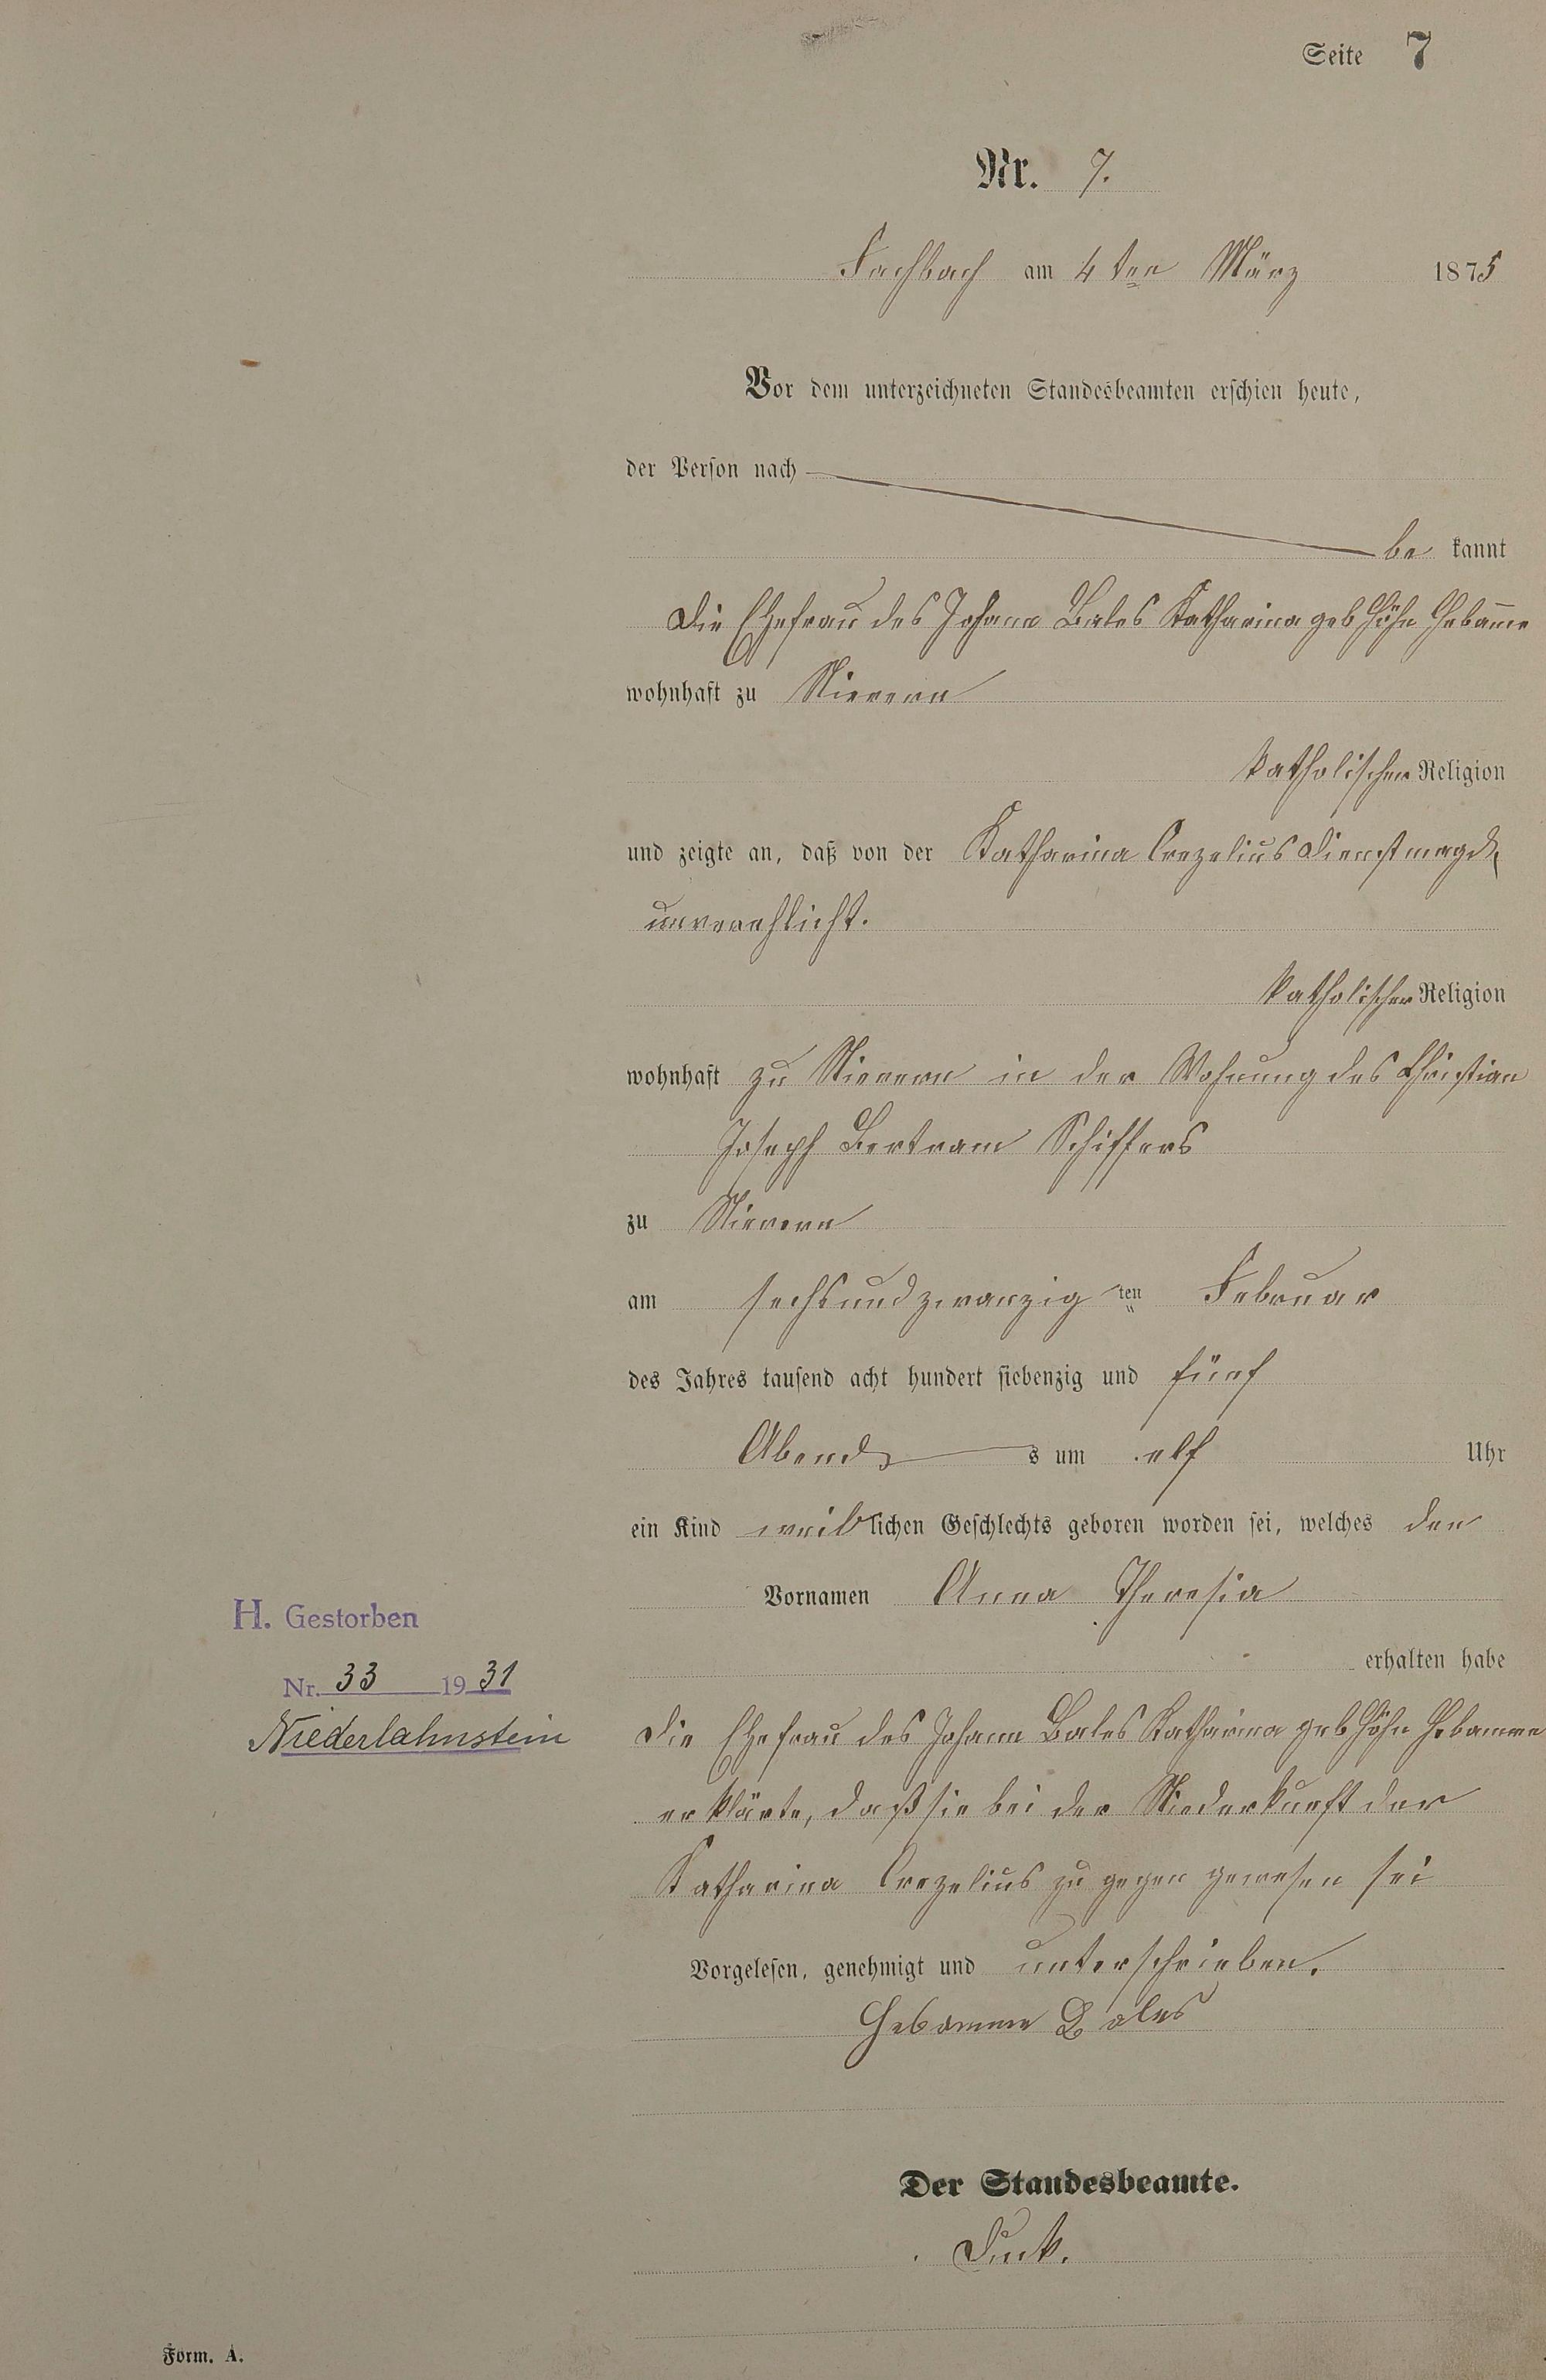 Seite 7
Nr. 7.
Fachbach am 4ten März 1875
Vor dem unterzeichneten Standesbeamten erschien heute,
der Person nach
be kannt
die Ehefrau des Johann Bales Katharina geb Höhn Hebam̄e
wohnhaft zu Nievern
katholischer Religion
und zeigte an, daß von der Katharina Crezelius Dienstmagd,
unverehlicht.
katholischer Religion
wohnhaft zu Nievern in der Wohnung des Christian
Joseph Bertram Schiffers
zu Nievern
am sechsundzwanzig ten Februar
des Jahres tausend acht hundert siebenzig und fünf
Abends um elf Uhr
ein Kind weiblichen Geschlechts geboren worden sei, welches den
Vornamen Anna Theresia
erhalten habe
H. Gestorben
Nr. 33 1931
Niederlahnstein
die Ehefrau des Johann Bales Katharina geb Höhn Hebamme
erklärte, daß sie bei der Niederkunft der
Katharina Crezelius zu gegen gewesen sei
Vorgelesen, genehmigt und unterschrieben.
Hebamme Bales
Der Standesbeamte.
Form. A.